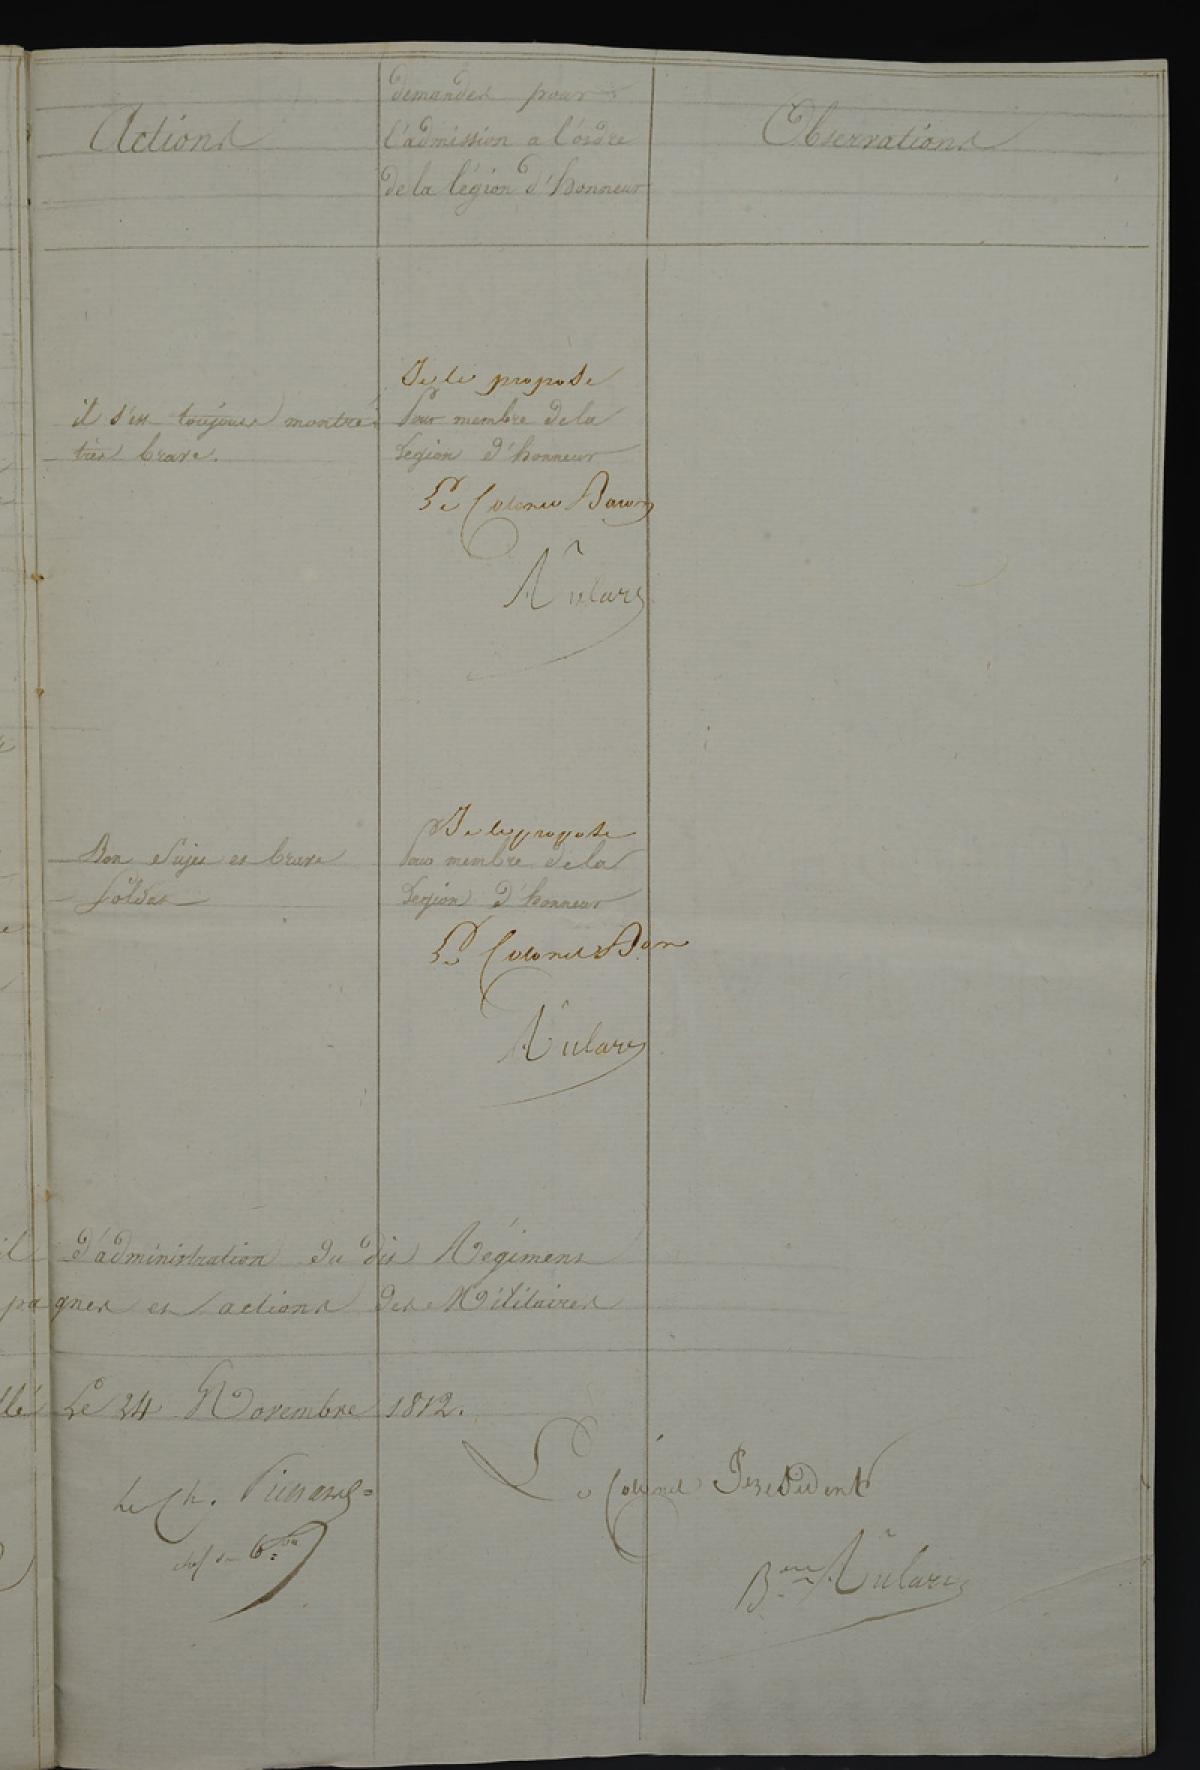 Actions
demandes pour
l'admission a l'ordre
de la légion d'honneur
Observations
il s'est toujours montré
très brave.
Je le propose
pour membre de la
Legion d'honneur
Le Colonel Baron
Bon Sujet et brave
Soldat
Je le propose
pour membre de la
Legion d'honneur
Le Colonel Bon
d'administration du dit Régiment
pagnes et actions des Militaires
Le 24 Novembre 1812.
Le Ch.
Le Colonel President
Bon